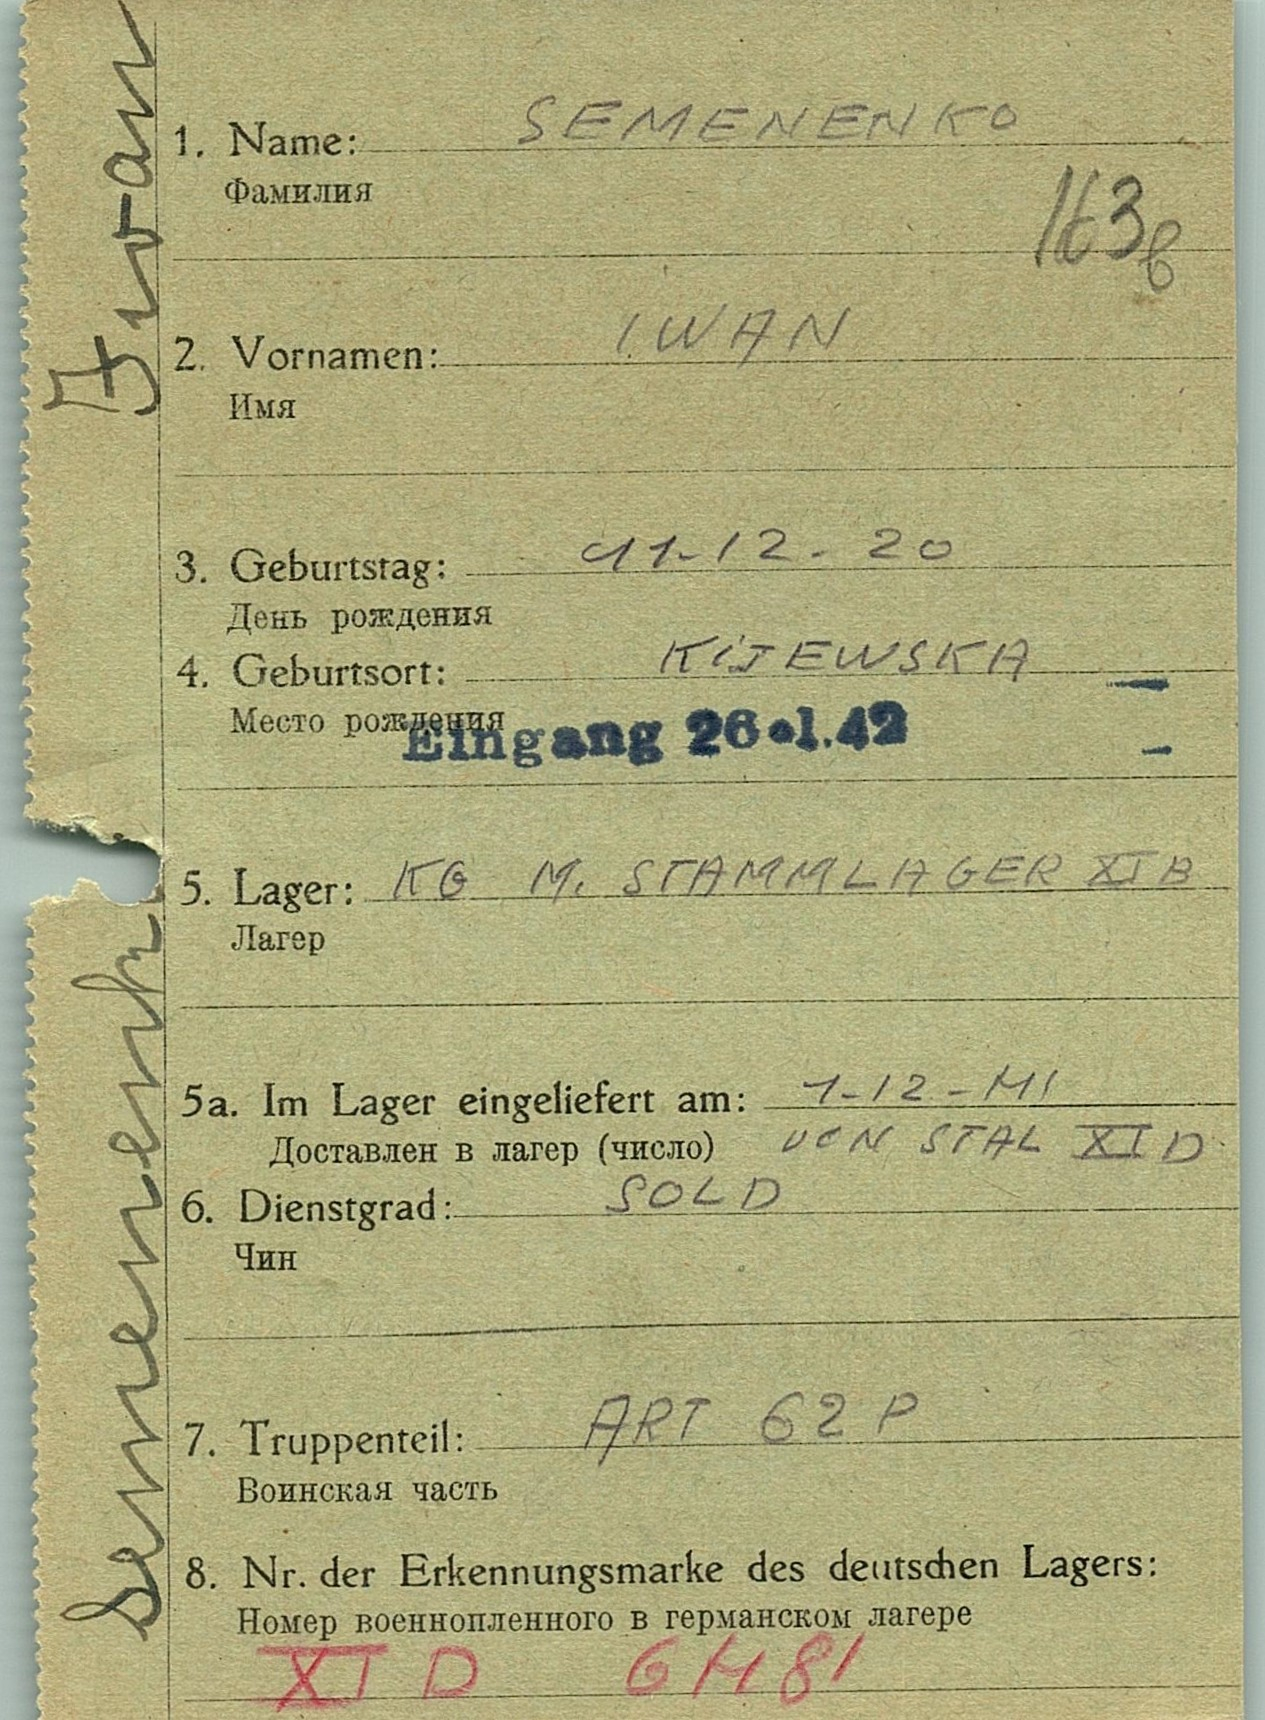 Semenenko Iwan
1. Name: SEMENENKO
Фамилия
163 b
2. Vornamen: IWAN
Имя
3. Geburtstag: 11-12-20
День рождения
4. Geburtsort: KIJEWSKA
Место рождения
Eingang 26.1.42
5. Lager: KG M. STAMMLAGER XI B
Лагер
5a. Im Lager eingeliefert am: 1-12-41
Доставлен в лагер (число) VON STAL XI D
6. Dienstgrad: SOLD
Чин
7. Truppenteil: ART 62 P
Воинская часть
8. Nr. der Erkennungsmarke des deutschen Lagers:
Номер военнопленного в германском лагере
XI D 6481